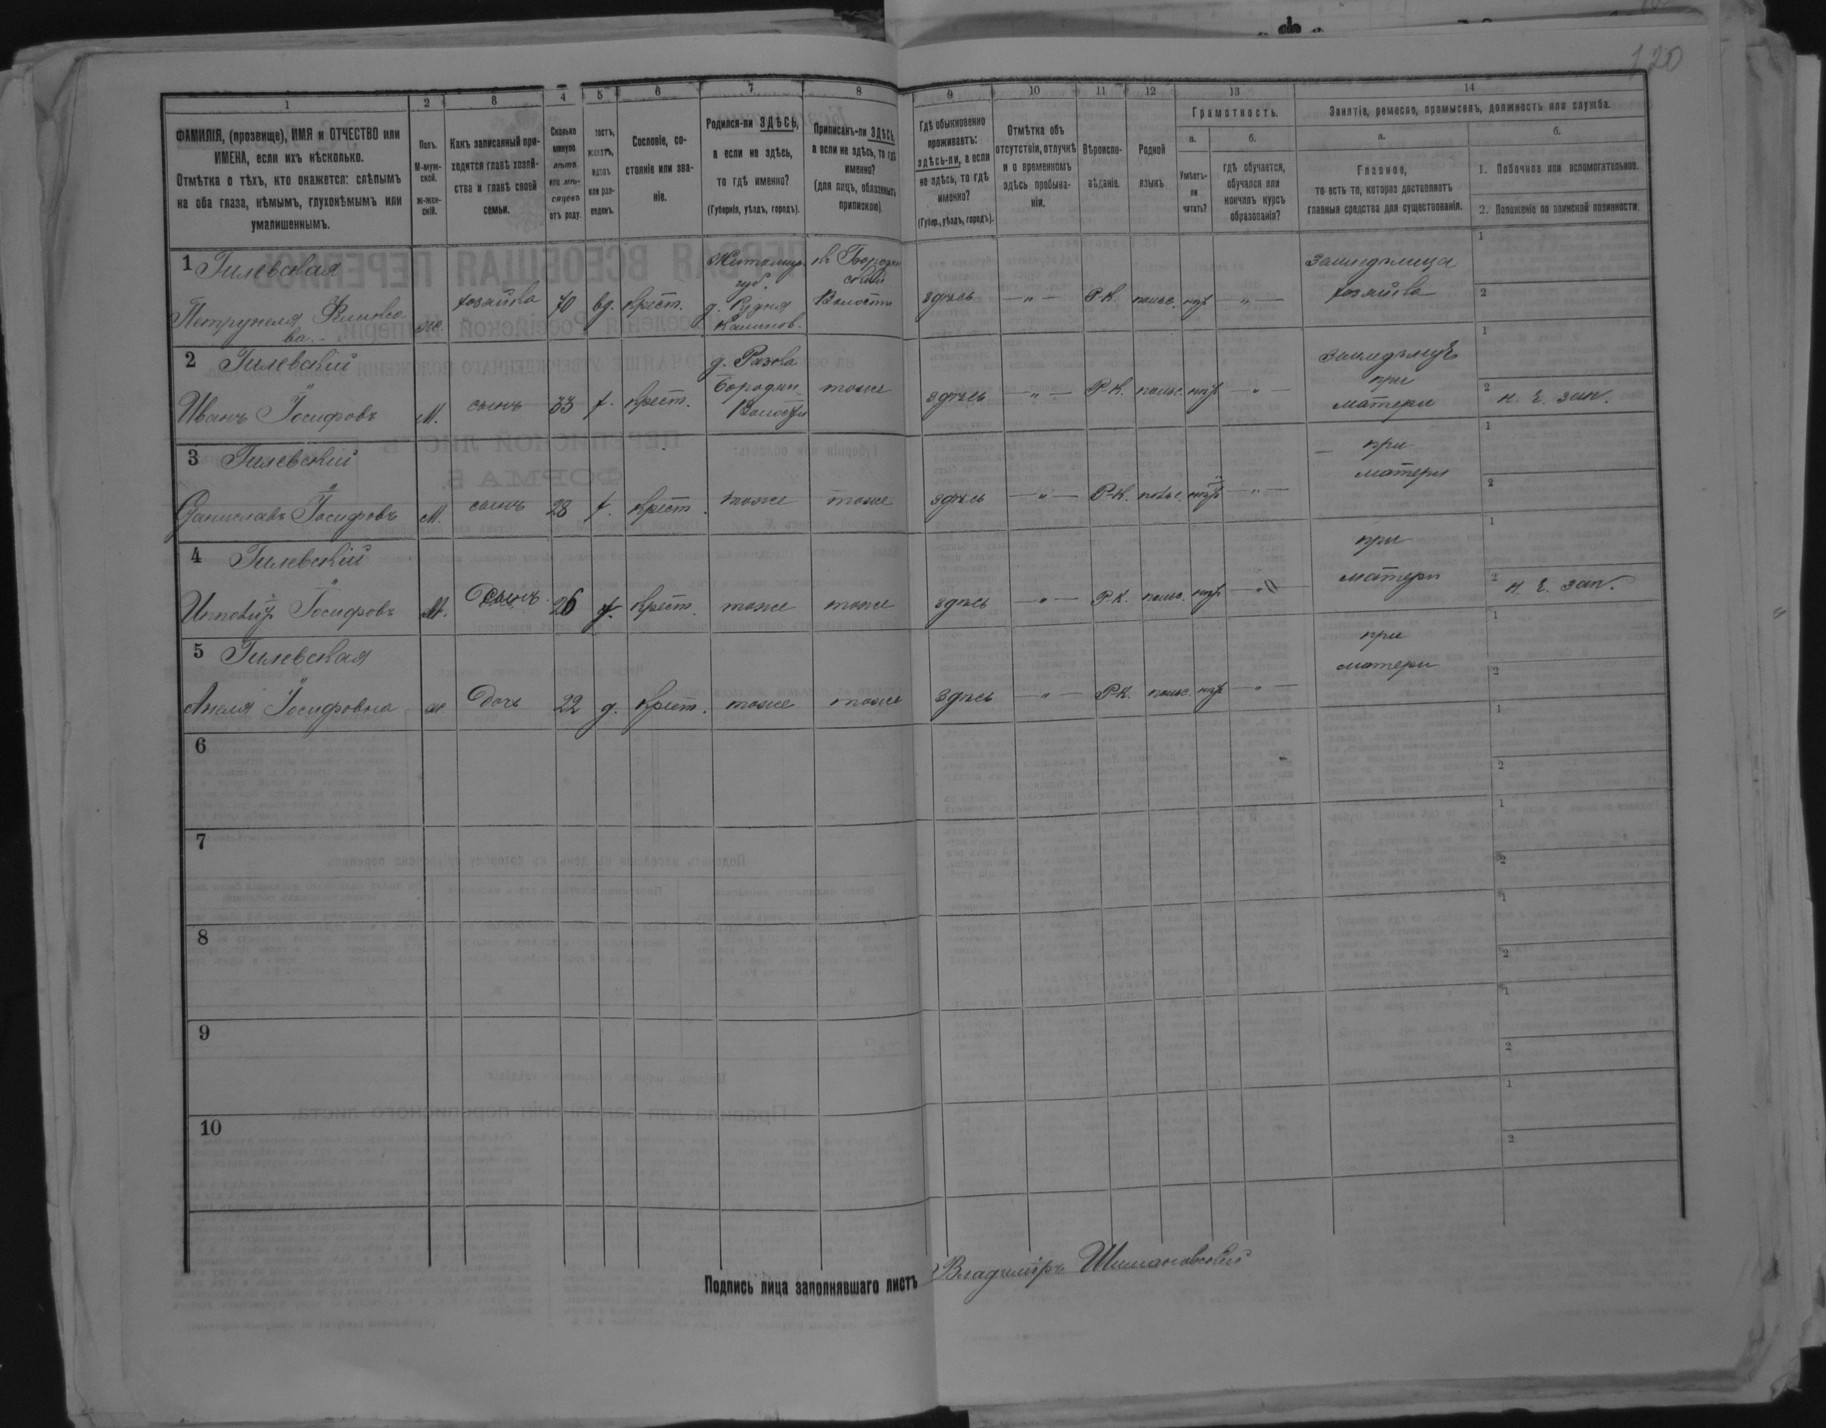 120
1 2 3 4 5 6 7 8 9 10 11 12 13 14
ФАМИЛІЯ, (прозвище), ИМЯ и ОТЧЕСТВО или
ИМЕНА, если ихъ нѣсколько.
Отмѣтка о тѣхъ, кто окажется: слѣпымъ
на оба глаза, нѣмымъ, глухонѣмымъ или
умалишеннымъ.
Полъ.
М-муж-
ской.
ж-жен-
скій.
Какъ записанный при-
ходится главѣ хозяй-
ства и главѣ своей
семьи.
Сколько
минуло
лѣтъ
или мѣ-
сяцевъ
отъ роду.
Холостъ,
женатъ,
вдовъ
или раз-
веденъ.
Сословіе, со-
стояніе или зва-
ніе.
Родился-ли ЗДѢСЬ,
а если не здѣсь,
то гдѣ именно?
(Губернія, уѣздъ, городъ).
Приписанъ-ли ЗДѢСЬ,
а если не здѣсь, то гдѣ
именно?
(для лицъ, обязанныхъ
припискою).
Гдѣ обыкновенно
проживаетъ:
здѣсь-ли, а если
не здѣсь, то гдѣ
именно?
(Губер., уѣздъ, городъ).
Отмѣтка объ
отсутствіи, отлучкѣ
и о временномъ
здѣсь пребыва-
ніи.
Вѣроиспо-
вѣданіе.
Родной
языкъ.
Грамотность.
а.
Умѣетъ-
ли
читать?
б.
гдѣ обучается,
обучался или
кончилъ курсъ
образованія?
Занятіе, ремесло, промыселъ, должность или служба.
а.
Главное,
то есть то, которое доставляетъ
главныя средства для существованія.
б.
1. Побочное или вспомогательное.
2. Положеніе по воинской повинности.
1 Гилевская
Петрунеля
ж. хозяйка 70 вд. крест.
Житомир.
губ.
д. Рудня
Волости
здѣсь — „ — Р-К. польс. нѣт — „ —
хозяйка
1
2
2 Гилевскій
Иванъ Іосифовъ М. сынъ 33 х. крест.
Волости
тоже здѣсь — „ — Р-К. польс. нѣт — „ —
при
матери
1
2 н. ч. зап.
3 Гилевскій
Станиславъ Іосифовъ М. сынъ 28 х. крест. тоже тоже здѣсь — „ — Р-К. польс. нѣт — „ —
при
матери
1
2
4 Гилевскій
Іосифовъ М. сынъ 26 х. крест. тоже тоже здѣсь — „ — Р-К. польс. нѣт — „ —
при
матери
1
2 н. ч. зап.
5 Гилевская
Анеля Іосифовна ж. Дочь 22 д. крест. тоже тоже здѣсь — „ — Р-К. польс. нѣт — „ —
при
матери
1
2
6
1
2
7
1
2
8
1
2
9
1
2
10
1
2
Подпись лица заполнявшаго листъ Владиміръ Шимановскій